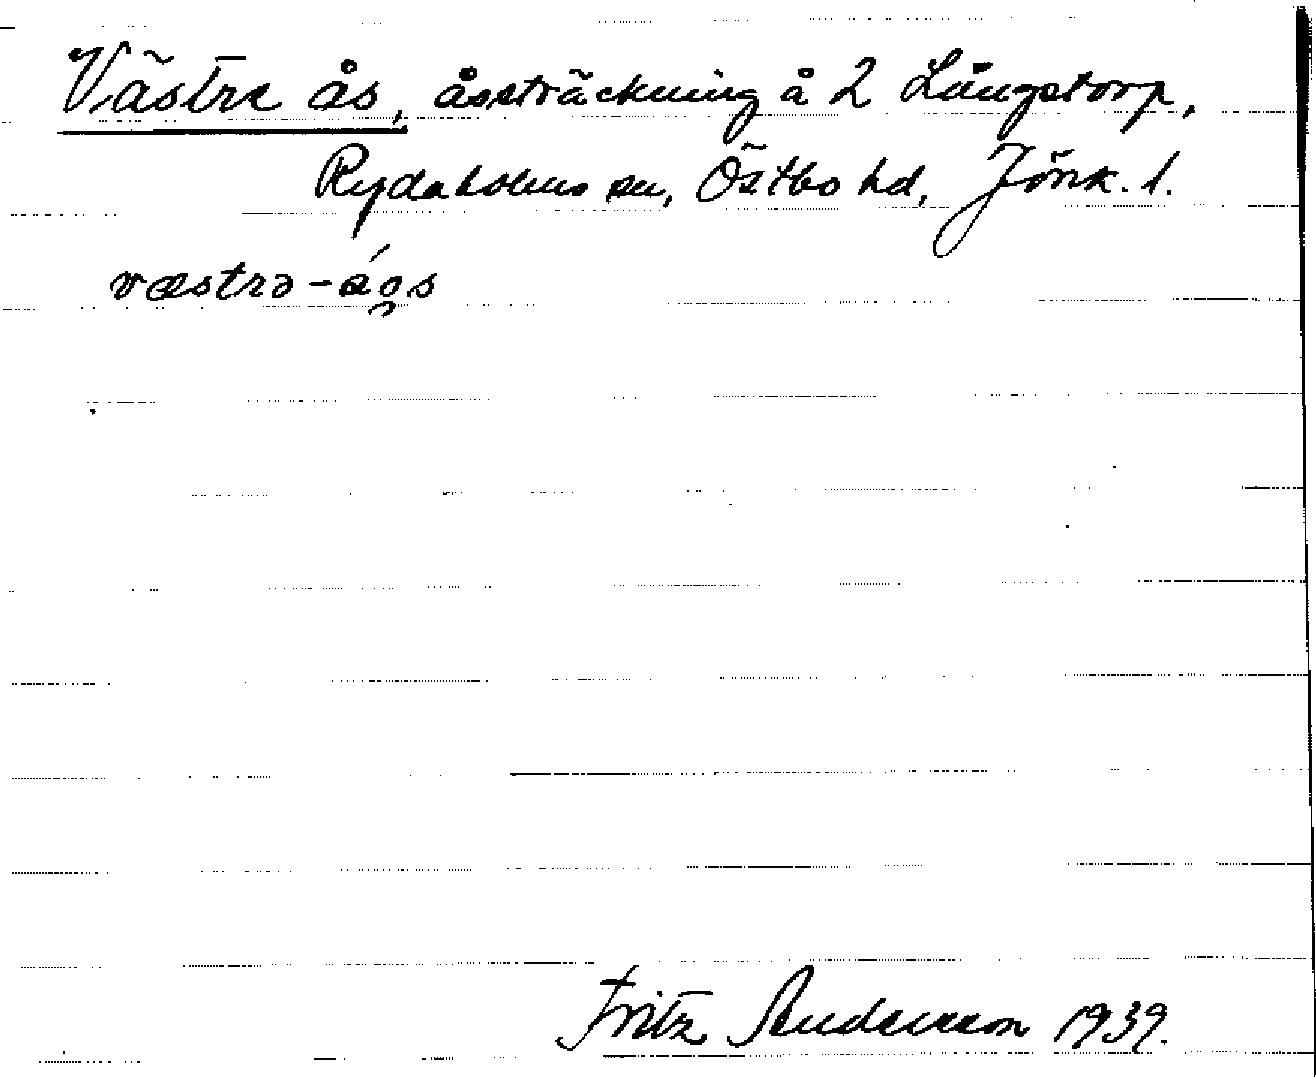 Västre ås, åssträckning å 2 Långstorp,
Rydaholms sn, Östbo hd, Jönk. l.
væstrə-áo̯s
Fritz Andersson 1939.